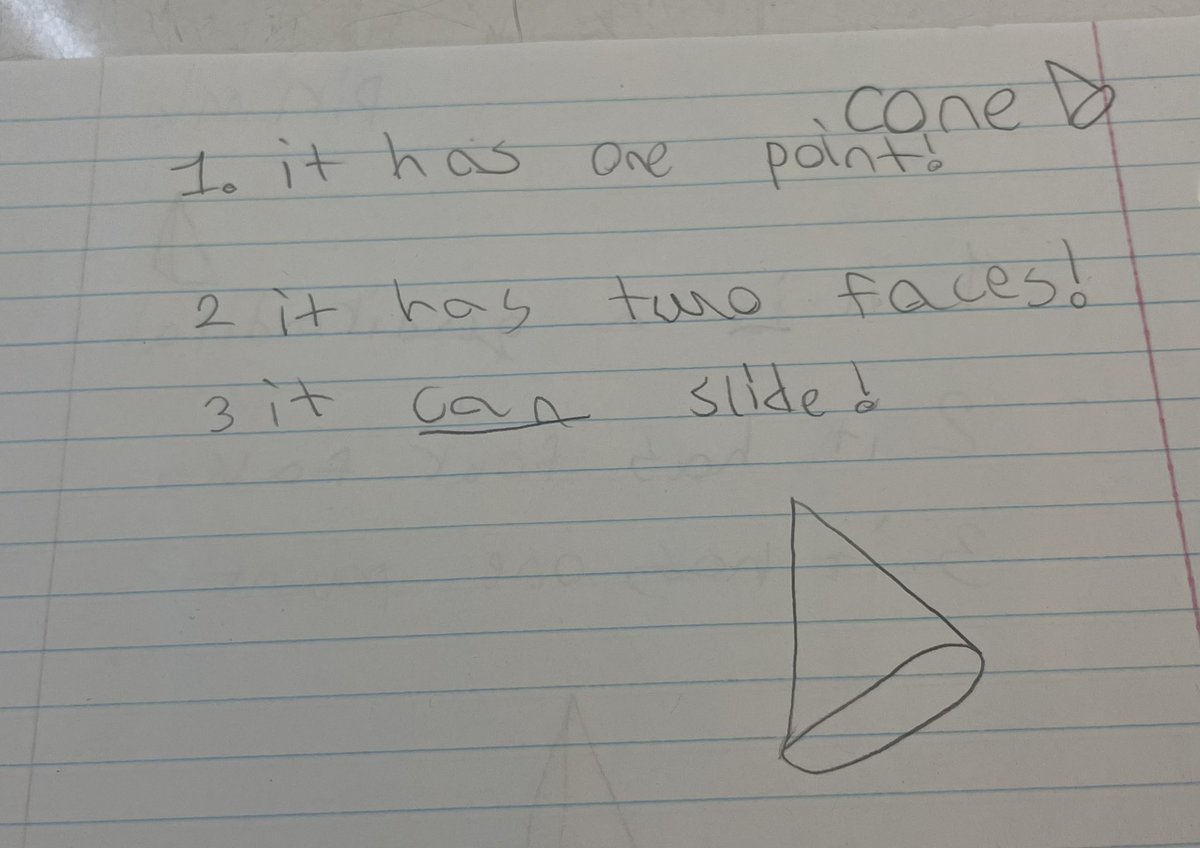 cone
1. it has one point!
2 it has two faces!
3 it can slide!